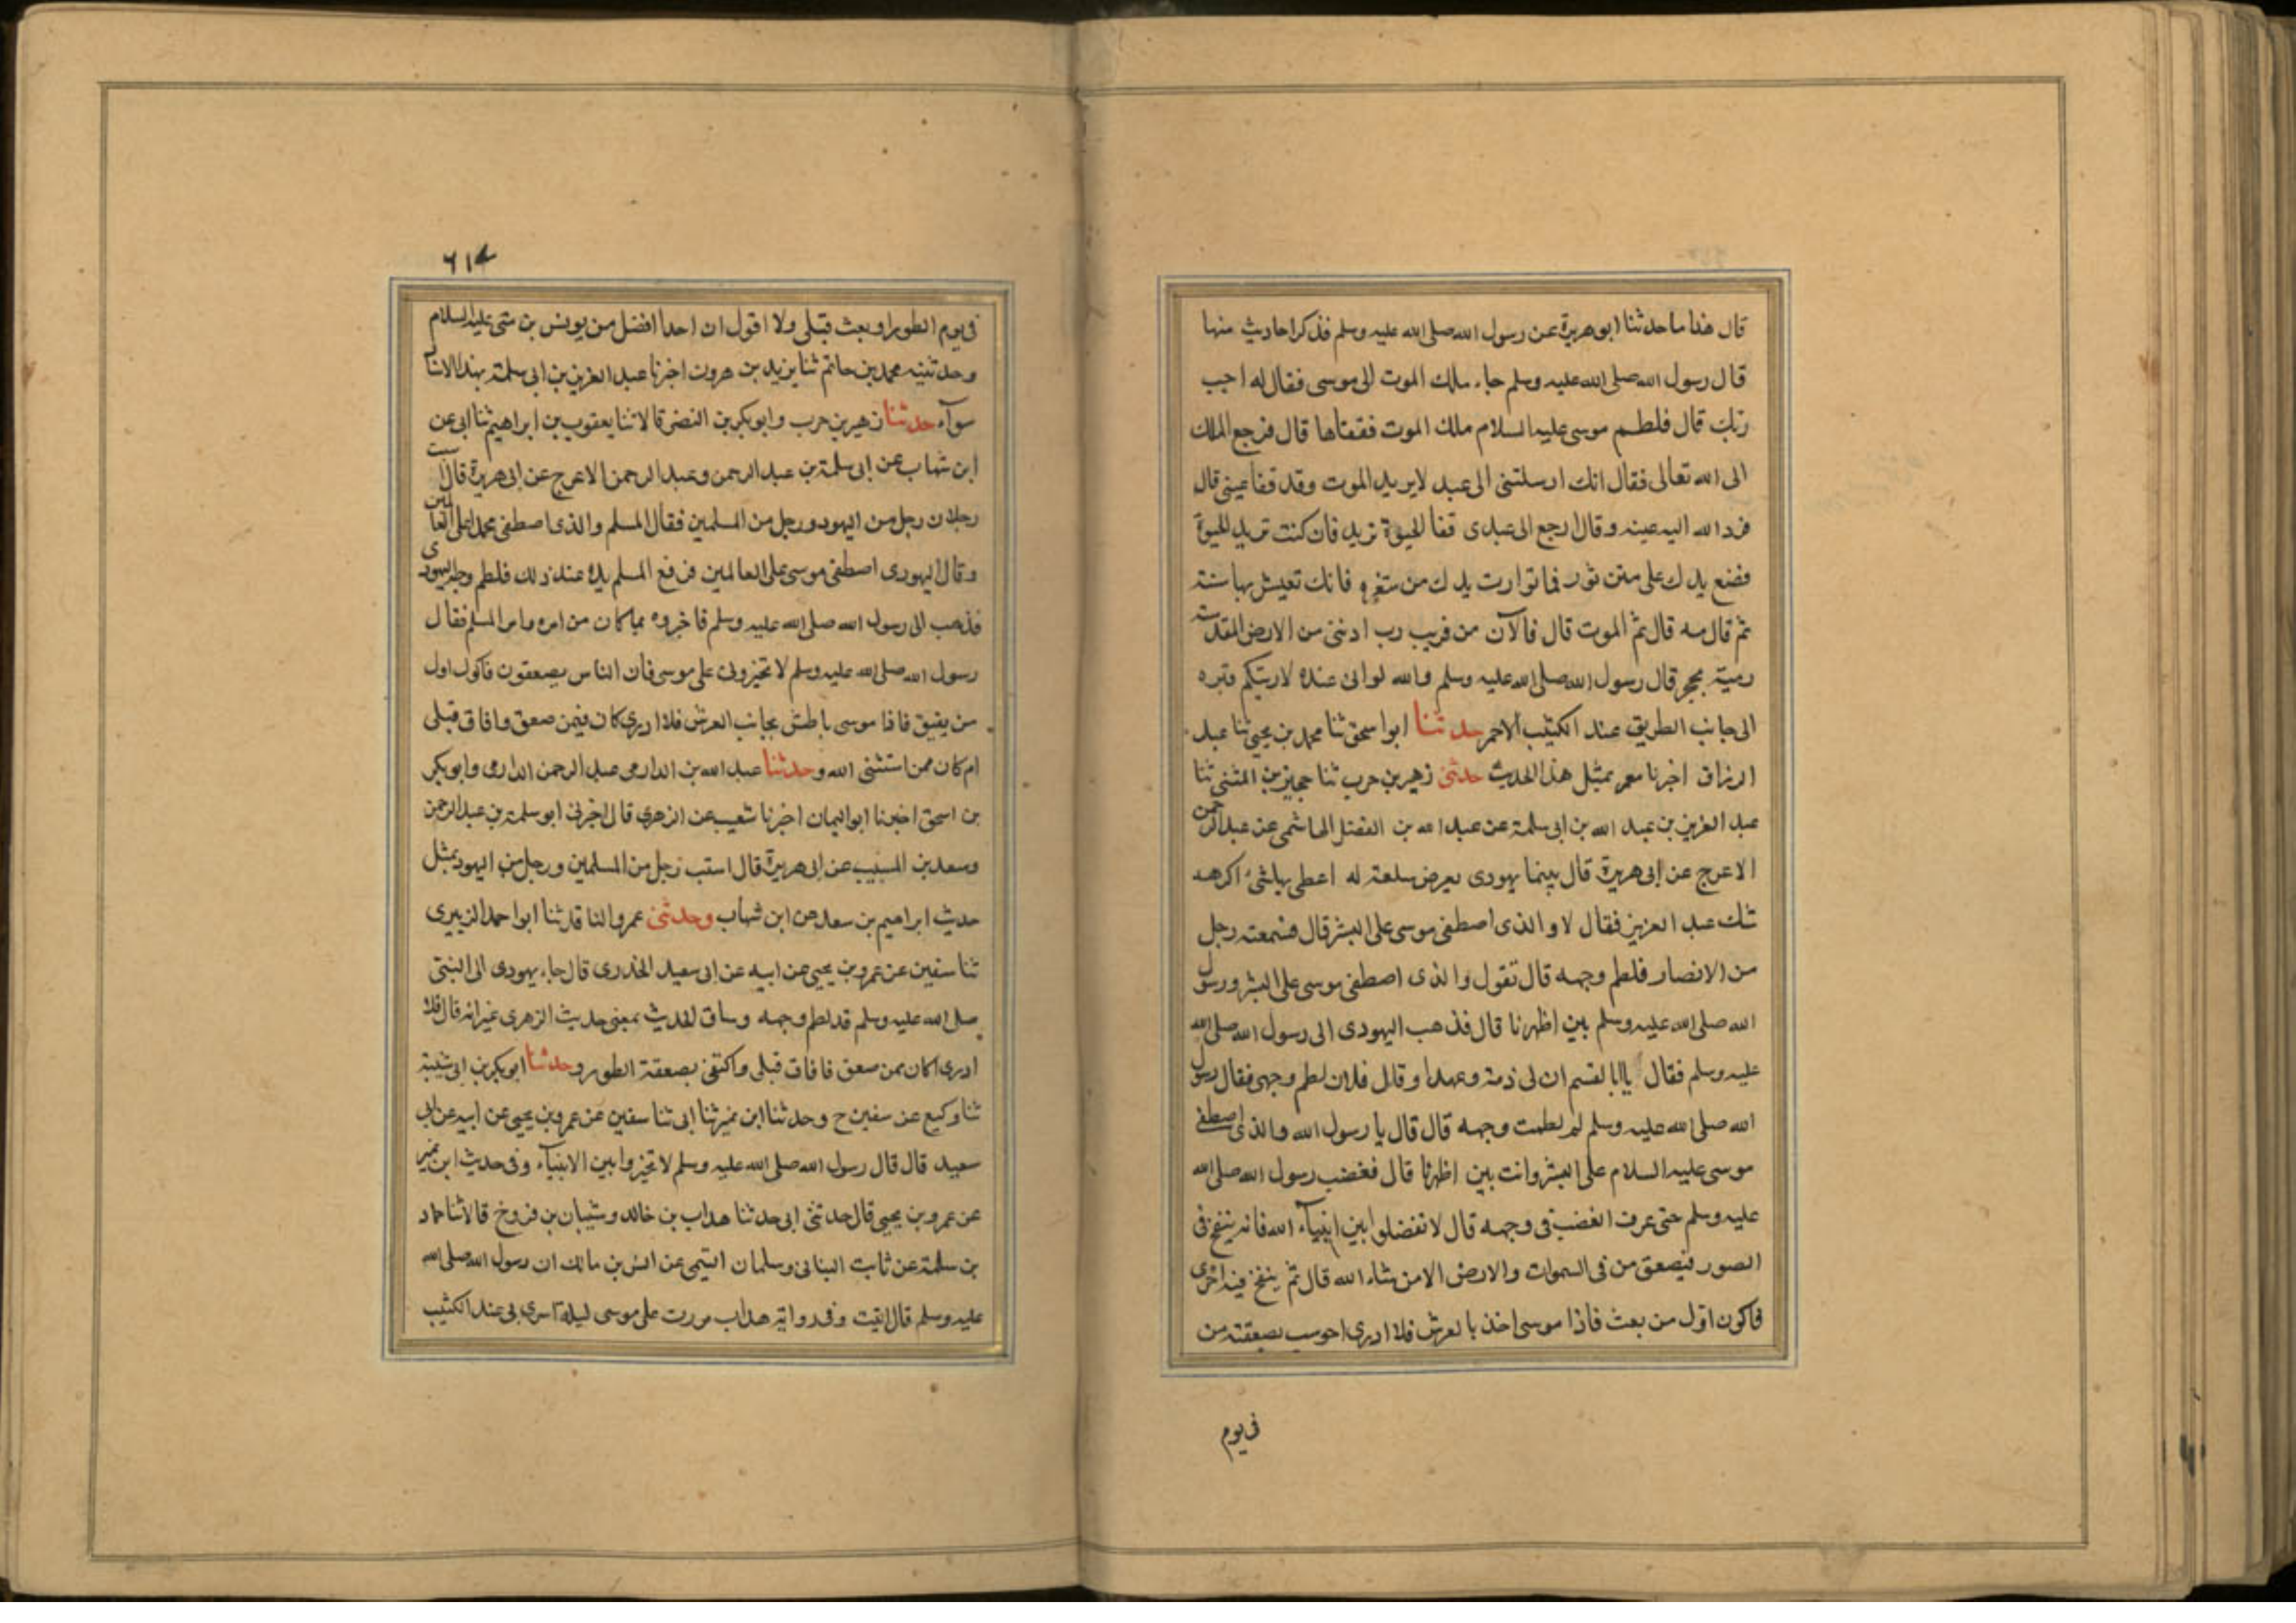 قال هذا ما حدثنا ابو هريرة عن رسول الله صلى الله عليه وسلم فذكر احاديث منها
قال رسول الله صلى الله عليه وسلم جاء ملك الموت الى موسى فقال له اجب
ربك قال فلطم موسى عليه السلام ملك الموت ففقاها قال فرجع الملك
الى الله تعالى فقال انك ارسلتنى الى عبد لا يريد الموت وقد فقا عينى قال
فرد الله اليه عينه وقال ارجع الى عبدى فقا الحيوة تريد فان كنت تريد الحيوة
فضع يدك على متن ثور فما توارت يدك من فانك تعيش بها سنة
ثم قال مه قال ثم الموت قال فالآن من قريب رب ادننى من الارض المقدسة
رمية بحجر قال رسول الله صلى الله عليه وسلم والله لو انى عنده لاريتكم قبره
الى جانب الطريق عند الكثيب الاحمر حدثنا ابو اسحق ثنا محمد بن يحيى ثنا عبد
الرزاق اخبرنا معمر بمثل هذا الحديث حدثنى زهير بن حرب ثنا حجين بن المثنى ثنا
عبد العزيز بن عبد الله بن ابى سلمة عن عبد الله بن الفضل الهاشمى عن عبد الرحمن
الاعرج عن ابى هريرة قال بينما يهودى يعرض سلعة له اعطى بها شئ اكرهه
شك عبد العزيز فقال لا والذى اصطفى موسى على البشر قال فسمعته رجل
من الانصار فلطم وجهه قال تقول والذى اصطفى موسى على البشر ورسول
الله صلى الله عليه وسلم بين اظهرنا قال فذهب اليهودى الى رسول الله صلى الله
عليه وسلم فقال يا ابا القسم ان لى ذمة وعهدا وقال فلان لطم وجهى فقال رسول
الله صلى الله عليه وسلم لم لطمت وجهه قال قال يا رسول الله والذى اصطفى
موسى عليه السلام على البشر وانت بين اظهرنا قال فغضب رسول الله صلى الله
عليه وسلم حتى عرف الغضب فى وجهه قال لا تفضلوا بين انبياء الله فانه ينفخ فى
الصور فيصعق من فى السموات والارض الا من شاء الله قال ثم ينفخ فيه اخرى
فاكون اول من بعث فاذا موسى اخذ بالعرش فلا ادرى احوسب بصعقته من
فى يوم
٦١٤
فى يوم الطور او بعث قبلى ولا اقول ان احدا افضل من يونس بن متى عليه السلام
وحدثنيه محمد بن حاتم ثنا يزيد بن هرون اخبرنا عبد العزيز بن ابى سلمة بهذا الاسناد
سوآء حدثنا زهير بن حرب وابو بكر بن النضر قالا ثنا يعقوب بن ابراهيم ثنا ابى عن
ابن شهاب عن ابى سلمة بن عبد الرحمن وعبد الرحمن الاعرج عن ابى هريرة قال استب
رجلان رجل من اليهود ورجل من المسلمين فقال المسلم والذى اصطفى محمدا على العالمين
وقال اليهودى اصطفى موسى على العالمين فرفع المسلم يده عند ذلك فلطم وجه اليهودى
فذهب الى رسول الله صلى الله عليه وسلم فاخبروه بما كان من امره وامر المسلم فقال
رسول الله صلى الله عليه وسلم لا تخيرونى على موسى فان الناس يصعقون فاكون اول
من يفيق فاذا موسى باطش بجانب العرش فلا ادرى كان فيمن صعق وافاق قبلى
ام كان ممن استثنى الله وحدثنا عبد الله بن الدارمى عبد الرحمن الدارمى وابو بكر
بن اسحق اخبرنا ابو اليمان اخبرنا شعيب عن الزهرى قال اخبرنى ابو سلمة بن عبد الرحمن
وسعد بن المسيب عن ابى هريرة قال استب رجل من المسلمين ورجل من اليهود بمثل
حديث ابراهيم بن سعد عن ابن شهاب وحدثنى عمرو الناقد ثنا ابو احمد الزبيرى
ثنا سفين عن عمرو بن يحيى عن ابيه عن ابى سعيد الخدرى قال جاء يهودى الى النبى
صلى الله عليه وسلم قد لطم وجهه وساق الحديث بمعنى حديث الزهرى غير انه قال فلا
ادرى اكان ممن صعق فافاق قبلى واكتفى بصعقة الطور وحدثنا ابو بكر بن ابى شيبة
ثنا وكيع عن سفين ح وحدثنا ابن نمير ثنا ابى ثنا سفين عن عمرو بن يحيى عن ابيه عن ابى
سعيد قال قال رسول الله صلى الله عليه وسلم لا تخيروا بين الانبيآء وفى حديث ابن نمير
عن عمرو بن يحيى قال حدثنى ابى حدثنا هداب بن خالد وشيبان بن فروخ قالا ثنا حماد
بن سلمة عن ثابت البنانى وسلمان التيمى عن انس بن مالك ان رسول الله صلى الله
عليه وسلم قال اتيت وفى رواية هداب مررت على موسى ليلة اسرى بى عند الكثيب